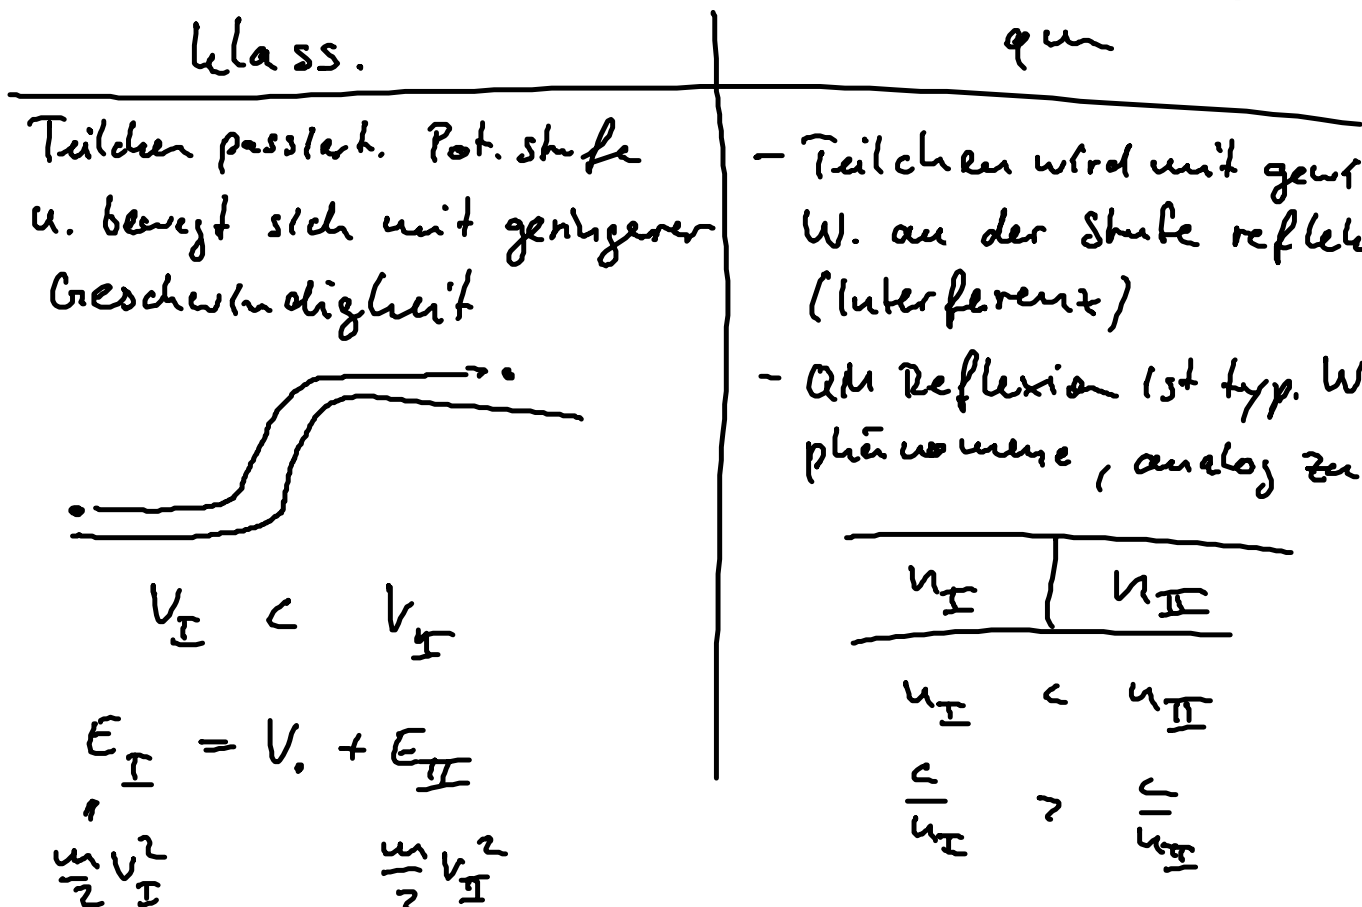 klass.
Teilchen passiert. Pot. stufe
u. bewegt sich mit geringerer
Geschwindigkeit
V_I < V_II
E_I = V_0 + E_II
m/2 v_I^2 m/2 v_II^2
qm
- Teilchen wird mit
W. an der Stufe
(Interferenz)
- QM Reflexion ist typ. W
phänomene, analog zu
n_I | n_II
n_I < n_II
c/n_I > c/n_II